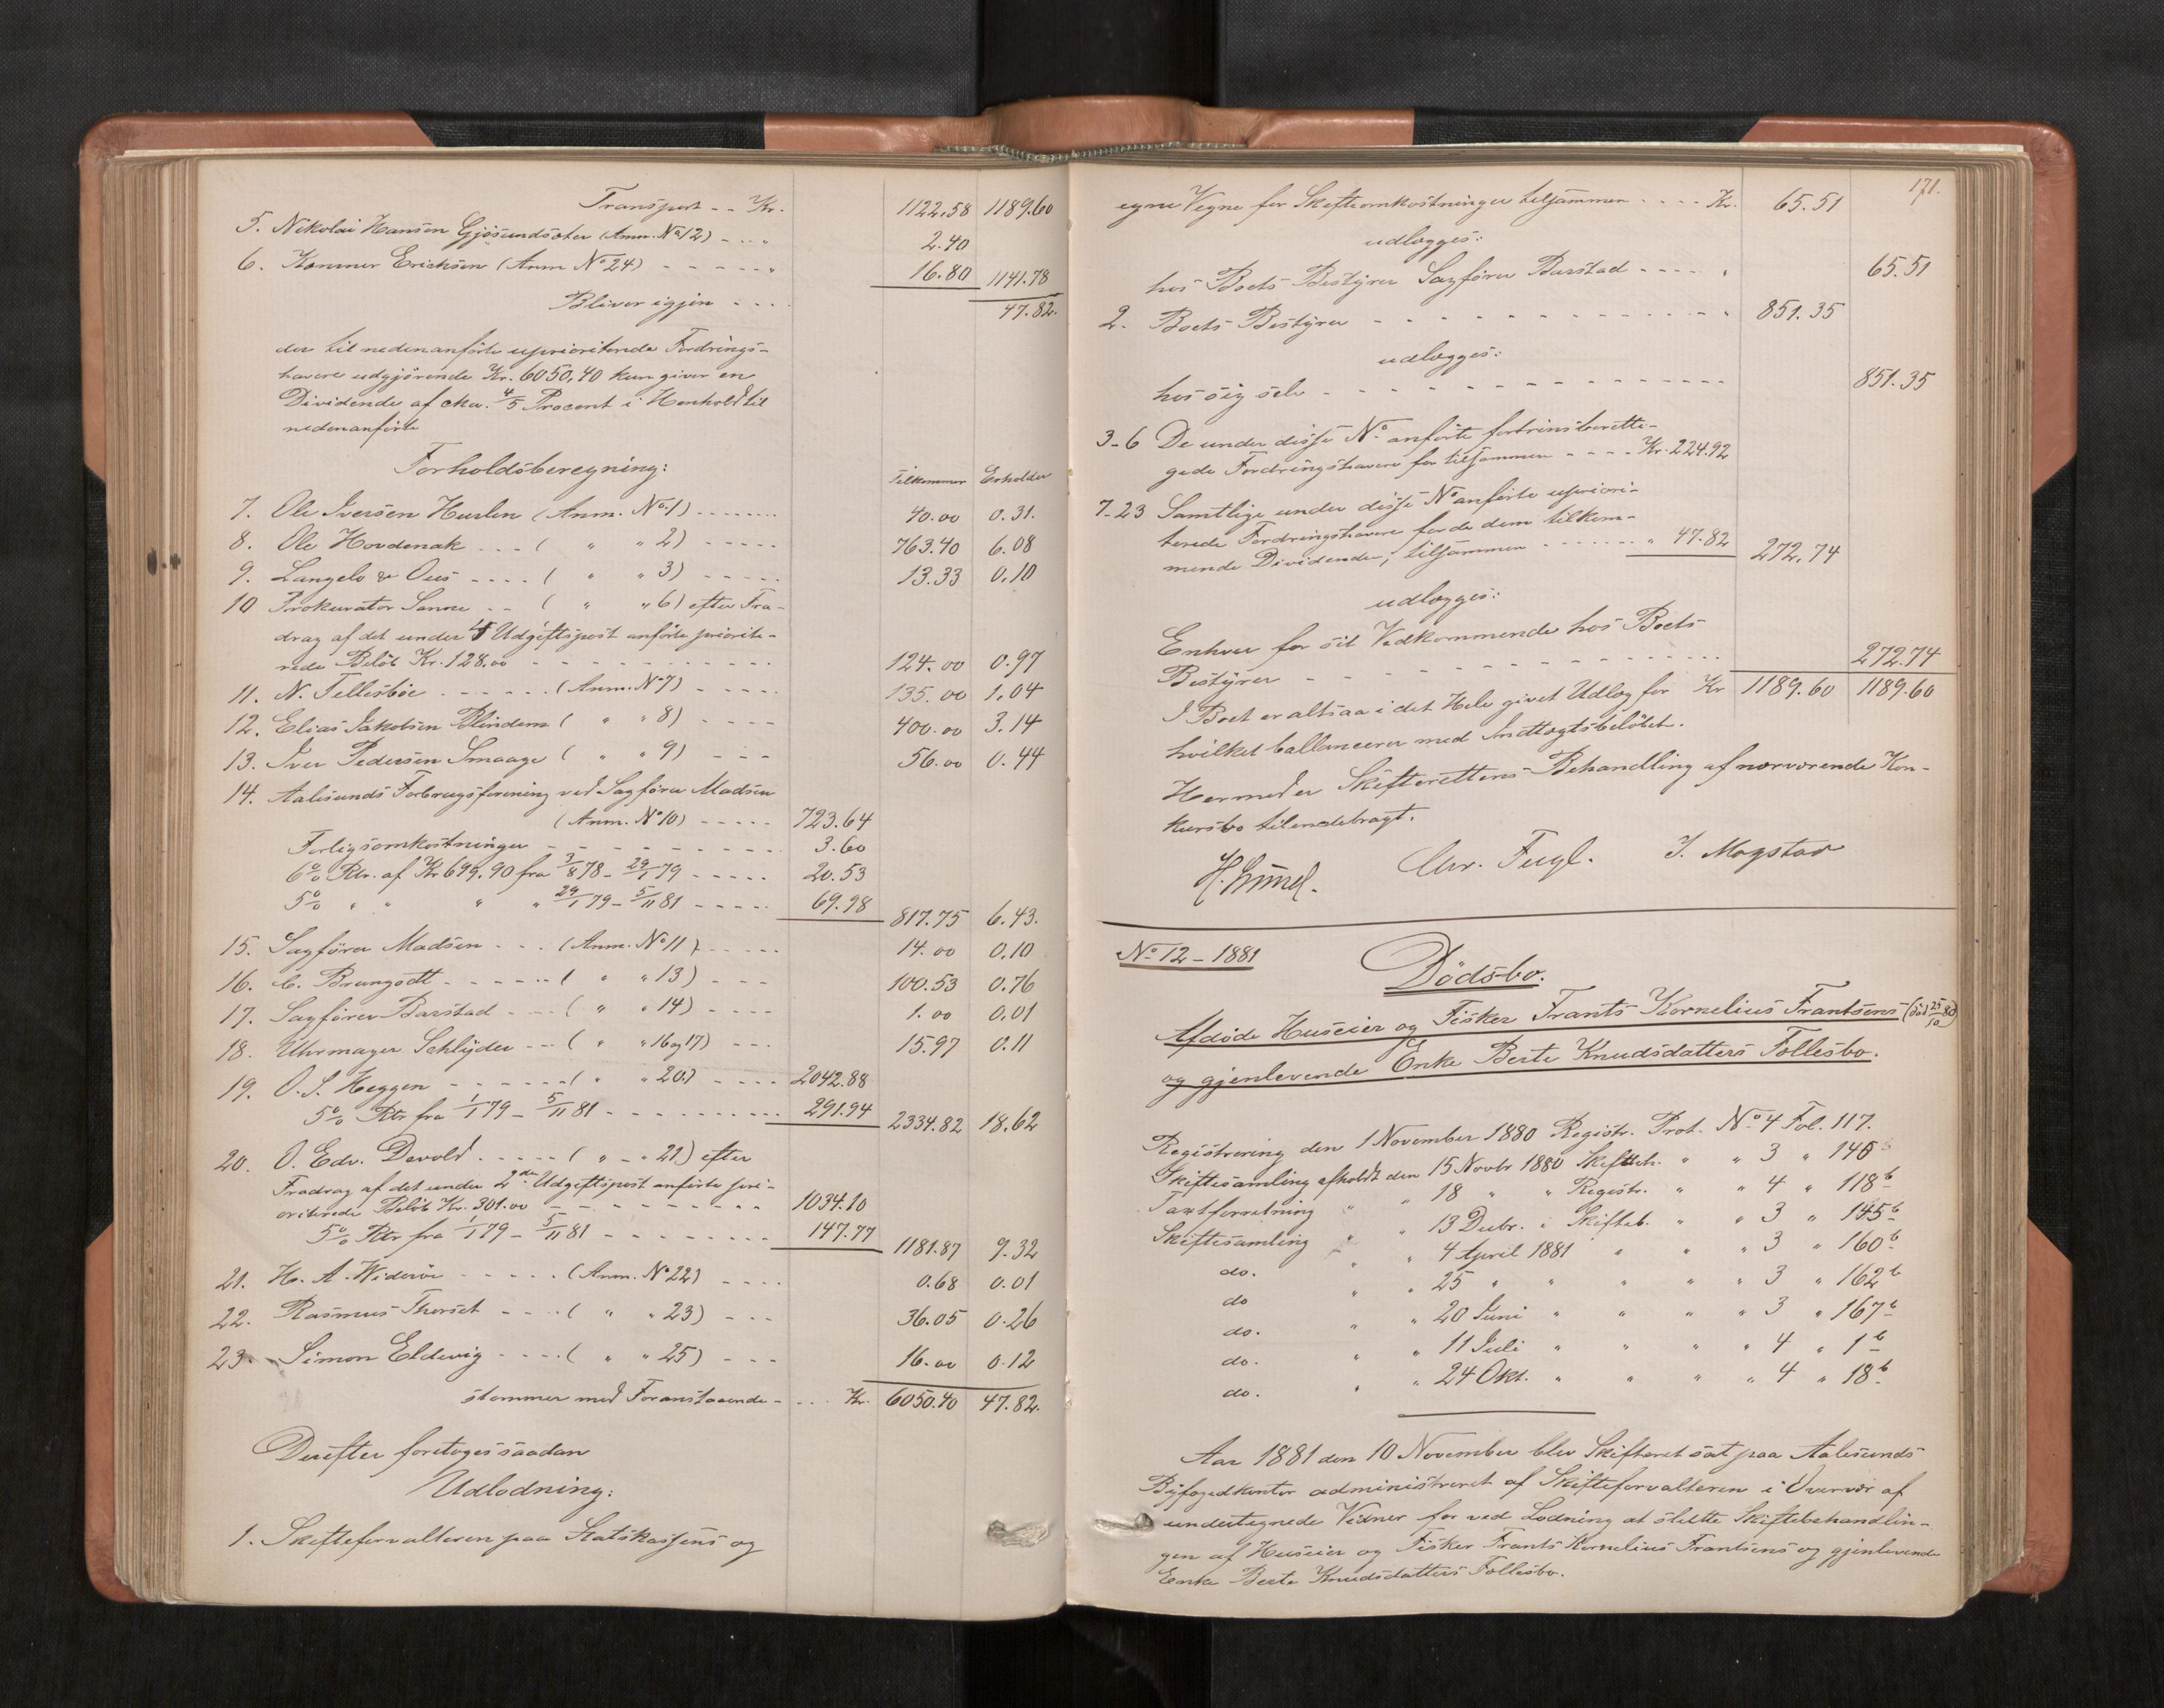 Transport - - Kr. 1122.58 1189.60
5. Nikolai Hansen Gjøsundsæter (Anm. No 12) - - - " 2.40
6. Konmer Erichsen (Anm No 24) - - - - - " 16.80 1141.78
Bliver igjen - - - 47.82.
der til nedenanførte uprioriterede Fordrings-
havere udgjørende Kr. 6050,40 kun giver en
Dividende af cka. 4/5 Procent i Henhold til
nedenanførte
Forholdsberegning:
Tilkommer Erholder
7. Ole Iversen Hurlen (Anm. No 1) - - - - 40.00 0.31.
8. Ole Hovdenak - - - ( " " 2) - - - - 763.40 6.08
9. Langelo & Ous - - - - ( " " 3) - - - - 13.33 0.10
10 Prokurator Sanne - - ( " " 6) efter Fra-
drag af det under 4 Udgiftspost anførte priorite-
rede Beløb Kr. 128.00 - - - - - - - - 124.00 0.97
11. N. Tellesbøe - - - - - - (Anm. No 7) - - - - 135.00 1.04
12. Elias Jakobsen Blindem ( " " 8) - - - - 400.00 3.14
13. Iver Pedersen Smaage ( " " 9) - - - 56.00 0.44
14. Aalesunds Forbrugsforening ved Sagfører Madsen
(Anm. No 10) - - - - - 723.64
Forligsomkostninger - - - - - - - - 3.60
6% Rtr. af Kr 699.90 fra 3/8 78 - 29/1 79 - - - - - 20.53
5% " " " " 29/1 79 - 5/11 81 - - - - 69.98 817.75 6.43.
15. Sagfører Madsen - - - (Anm. No 11) - - - - - 14.00 0.10
16. C. Brungodt - - - - - - ( " " 13) - - - 100.53 0.76
17. Sagfører Barstad - - - ( " " 14) - - - - 1.00 0.01
18. Uhrmager Schlyder - - - ( " " 16 og 17) - - - 15.97 0.11
19. O. I. Heggen - - - - - - ( " " 20.) - - - - 2042.88
5% Rtr fra 1/1 79 - 5/11 81 - - - - - - - - - - 291.94 2334.82 18.62
20. O. Edv. Devold - - - - - ( " - " 21) efter
Fradrag af det under 2den Udgiftspost anførte pri-
oriterede Beløb Kr. 301.00 - - - - - - - - - 1034.10
5% Rtr fra 1/1 79 - 5/11 81 - - - - - - - - 147.77 1181.87 9.32
21. H. A. Widerøe - - - - - (Anm. No 22) - - - - 0.68 0.01
22. Rasmus Thorset - - - - ( " " 23) - - - 36.05 0.26
23. Simon Eldevig - - - - ( " " 25) - - - 16.00 0.12
stemmer med Foranstaaende - - - - Kr. 6050.40 47.82.
Derefter foretoges saadan
Udlodning:
1. Skifteforvalteren paa Statskassens og
171.
egne Vegne for Skifteomkostninger tilsammen - - - - Kr. 65.51
udlægges:
hos Boets Bestyrer Sagfører Barstad - - - - " 65.51
2. Boets Bestyrer - - - - - - - - - - - - - " 851.35
udlægges:
hos sig selv - - - - - - - - - - - - - - - 851.35
3-6 De under disse No anførte fortrinsberetti-
gede Fordringshavere for tilsammen - - - - Kr. 224.92
7-23 Samtlige under disse No anførte upriori-
terede Fordringshavere for de dem tilkom-
mende Dividender, tilsammen - - - - - - - " 47.82 272.74
udlægges:
Enhver for sit Vedkommende hos Boets
Bestyrer - - - - - - - - - - - - - - - 272.74
I Boet er altsaa i det Hele givet Udlæg for Kr 1189.60 1189.60
hvilket ballancerer med Indtægtsbeløbet.
Hermed er Skifterettens Behandling af nærværende Kon-
kursbo tilendebragt.
Chr. Fugl. I. Magstad
No 12 - 1881
Dødsbo.
Afdøde Huseier og Fisker Frants Kornelius Frantsens (død 25/10 80)
og gjenlevende Enke Berte Knudsdatters Fællesbo.
Registrering den 1 November 1880 Registr. Prot. No 4 Fol. 117.
Skiftesamling afholdt den 15 Novbr 1880 Skifteb. " " 3 " 140
Taxtforretning " " 18 " " Registr. " " 4 " 118b
Skiftesamling " " 13 Decbr. " Skifteb. " " 3 " 145b
do. " " 4 April 1881 " " " 3 " 160b
do " " 25 " " " " " 3 " 162b
do. " " 20 Juni " " " " 3 " 167b
do. " " 11 Juli " " " " 4 " 1b
do. " " 24 Okt. " " " " 4 " 18b
Aar 1881 den 10 November blev Skifteret sat paa Aalesunds
Byfogedkontor administreret af Skifteforvalteren i Overvær af
undertegnede Vidner for ved Lodning at slutte Skiftebehandlin-
gen af Huseier og Fisker Frants Kornelius Frantsens og gjenlevende
Enke Berte Knudsdatters Fællesbo.